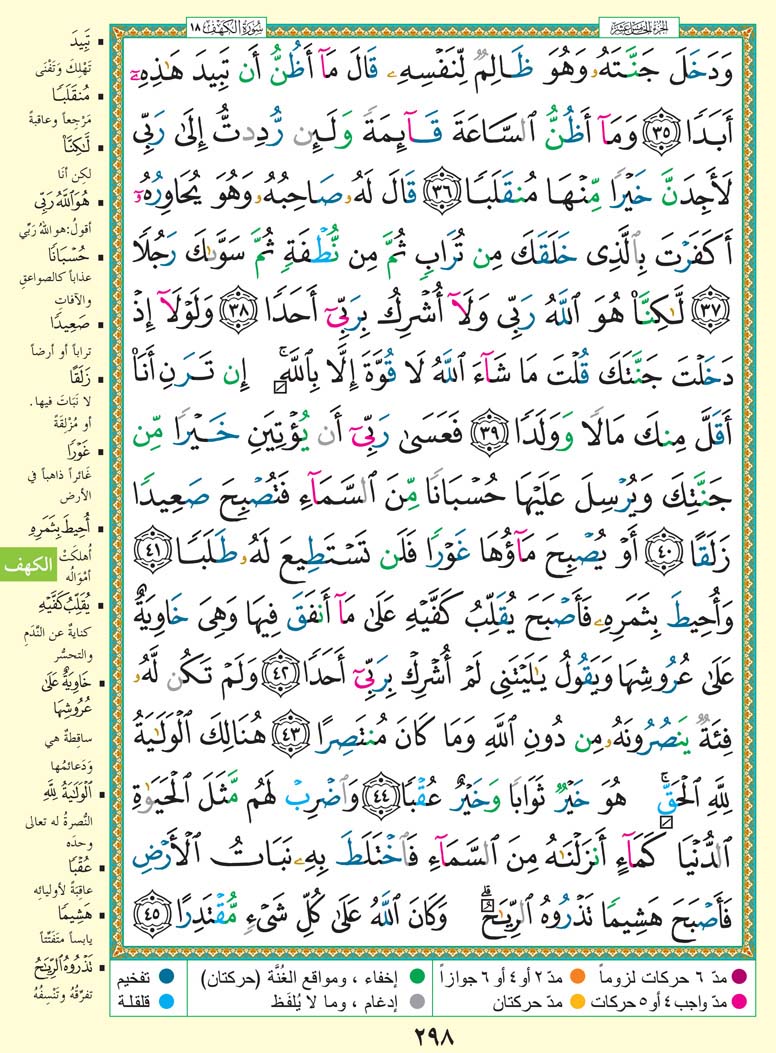 الجزء الخامس عشر
سورة الكهف ١٨
وَدَخَلَ جَنَّتَهُۥ وَهُوَ ظَالِمٌ لِّنَفْسِهِۦ قَالَ مَآ أَظُنُّ أَن تَبِيدَ هَٰذِهِۦٓ
أَبَدًا ٣٥ وَمَآ أَظُنُّ ٱلسَّاعَةَ قَآئِمَةً وَلَئِن رُّدِدتُّ إِلَىٰ رَبِّى
لَأَجِدَنَّ خَيْرًا مِّنْهَا مُنقَلَبًا ٣٦ قَالَ لَهُۥ صَاحِبُهُۥ وَهُوَ يُحَاوِرُهُۥٓ
أَكَفَرْتَ بِٱلَّذِى خَلَقَكَ مِن تُرَابٍ ثُمَّ مِن نُّطْفَةٍ ثُمَّ سَوَّىٰكَ رَجُلًا
٣٧ لَّٰكِنَّا۠ هُوَ ٱللَّهُ رَبِّى وَلَآ أُشْرِكُ بِرَبِّىٓ أَحَدًا ٣٨ وَلَوْلَآ إِذْ
دَخَلْتَ جَنَّتَكَ قُلْتَ مَا شَآءَ ٱللَّهُ لَا قُوَّةَ إِلَّا بِٱللَّهِ ۚ إِن تَرَنِ أَنَا۠
أَقَلَّ مِنكَ مَالًا وَوَلَدًا ٣٩ فَعَسَىٰ رَبِّىٓ أَن يُؤْتِيَنِ خَيْرًا مِّن
جَنَّتِكَ وَيُرْسِلَ عَلَيْهَا حُسْبَانًا مِّنَ ٱلسَّمَآءِ فَتُصْبِحَ صَعِيدًا
زَلَقًا ٤٠ أَوْ يُصْبِحَ مَآؤُهَا غَوْرًا فَلَن تَسْتَطِيعَ لَهُۥ طَلَبًا ٤١
وَأُحِيطَ بِثَمَرِهِۦ فَأَصْبَحَ يُقَلِّبُ كَفَّيْهِ عَلَىٰ مَآ أَنفَقَ فِيهَا وَهِىَ خَاوِيَةٌ
عَلَىٰ عُرُوشِهَا وَيَقُولُ يَٰلَيْتَنِى لَمْ أُشْرِكْ بِرَبِّىٓ أَحَدًا ٤٢ وَلَمْ تَكُن لَّهُۥ
فِئَةٌ يَنصُرُونَهُۥ مِن دُونِ ٱللَّهِ وَمَا كَانَ مُنتَصِرًا ٤٣ هُنَالِكَ ٱلْوَلَٰيَةُ
لِلَّهِ ٱلْحَقِّ ۚ هُوَ خَيْرٌ ثَوَابًا وَخَيْرٌ عُقْبًا ٤٤ وَٱضْرِبْ لَهُم مَّثَلَ ٱلْحَيَوٰةِ
ٱلدُّنْيَا كَمَآءٍ أَنزَلْنَٰهُ مِنَ ٱلسَّمَآءِ فَٱخْتَلَطَ بِهِۦ نَبَاتُ ٱلْأَرْضِ
فَأَصْبَحَ هَشِيمًا تَذْرُوهُ ٱلرِّيَٰحُ ۗ وَكَانَ ٱللَّهُ عَلَىٰ كُلِّ شَىْءٍ مُّقْتَدِرًا ٤٥
تَبِيدَ
تَهْلِكَ وَتَفْنَى
مُنقَلَبًا
مَرْجِعاً وعاقبةً
لَّٰكِنَّا۠
لكن أنَا
هُوَ ٱللَّهُ رَبِّى
أقولُ: هو اللهُ رَبِّي
حُسْبَانًا
عذاباً كالصواعقِ
والآفاتِ
صَعِيدًا
تراباً أو أرضاً
زَلَقًا
لا نَبَاتَ فيها.
أو مُزْلِقَةً
غَوْرًا
غَائراً ذاهباً في
الأرض
أُحِيطَ بِثَمَرِهِ
أُهلكَتْ
أمْوَالُه
يُقَلِّبُ كَفَّيْهِ
كنايةٌ عن النَّدَمِ
والتحسُّر
خَاوِيَةٌ عَلَىٰ
عُرُوشِهَا
ساقطةٌ هي
وَدَعائمُها
ٱلْوَلَٰيَةُ لِلَّهِ
النُّصرةُ له تعالى
وحدَه
عُقْبًا
عاقِبَةً لأوليائِه
هَشِيمًا
يابساً متَفَتِّتاً
تَذْرُوهُ ٱلرِّيَٰحُ
تفرِّقُهُ وتَنْسِفُهُ
الكهف
مدّ ٦ حركات لزوماً
مدّ ٢ أو ٤ أو ٦ جوازاً
إخفاء ، ومواقع الغُنَّة (حركتان)
تفخيم
مدّ واجب ٤ أو ٥ حركات
مدّ حركتان
إدغام ، وما لا يُلفَظ
قلقلة
٢٩٨